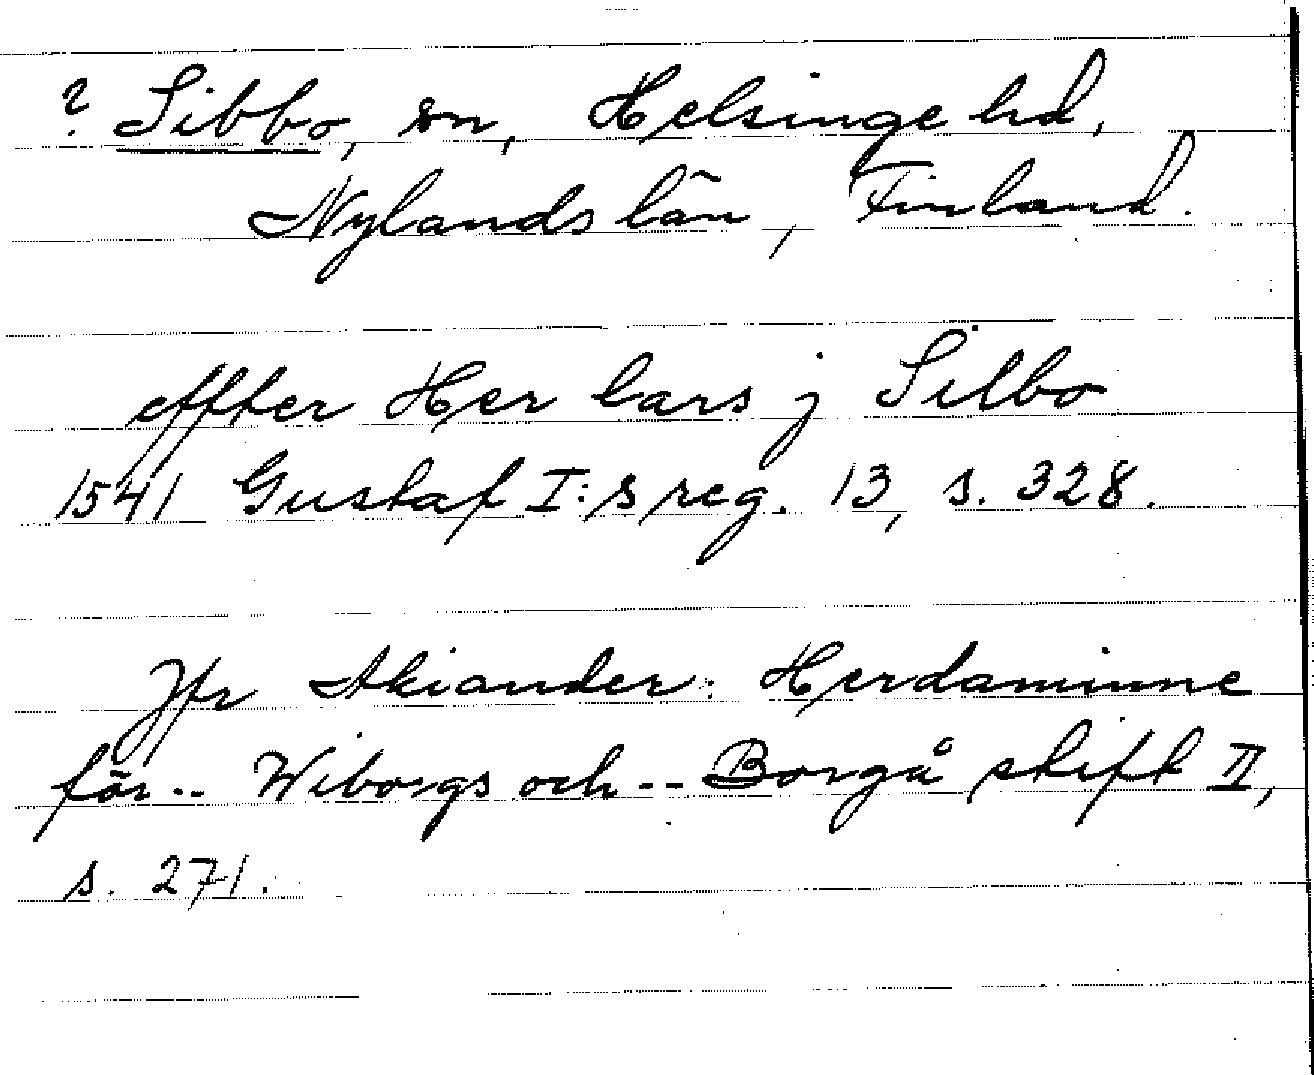 ? Sibbo, sn, Helsinge hd,
Nylands län, Finland.
effter Her lars j Silbo
1541 Gustaf I:s reg. 13, s. 328.
Jfr Akiander: Herdaminne
för.. Wiborgs och -- Borgå stift II,
s. 271.